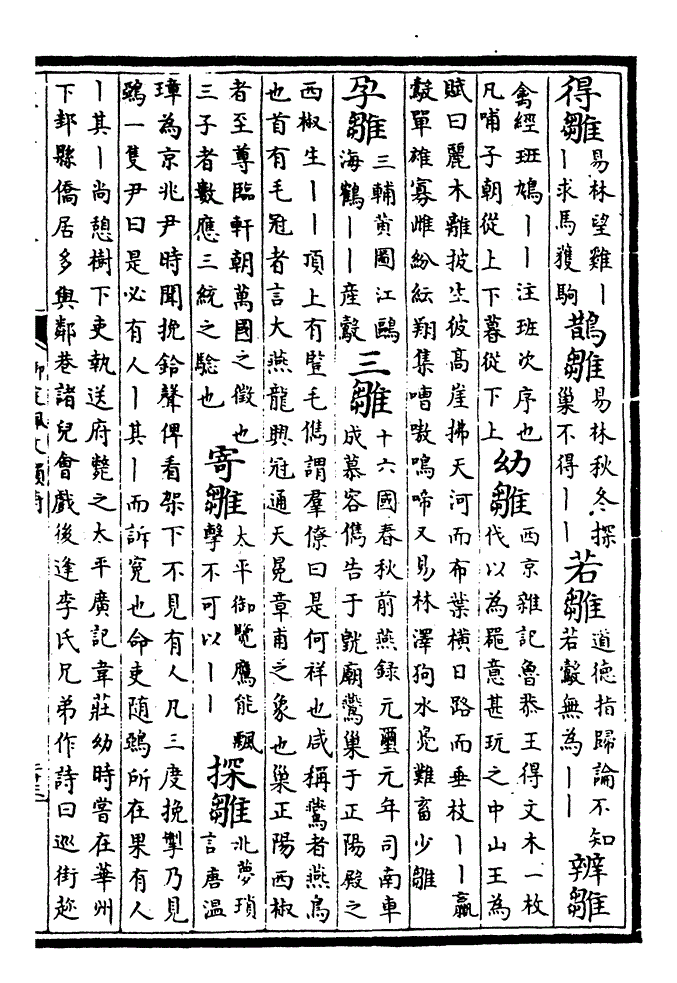 得雛 易林望雞丨丨求馬獲駒 鵲雛 易林秋冬探巢不得丨丨 若雛 道德指歸論不知若鷇無為丨丨 辨雛
禽經班鳩丨丨注班次序也凡哺子朝從上下暮從下上 幼雛 西京雜記魯恭王得文木一枚伐以為噐意甚玩之中山王為
賦曰麗木離披生彼髙崖拂天河而布葉橫日路而垂枝丨丨羸
鷇單雄寡雌紛紜翔集嘈嗷鳴啼又易林澤狗水鳬難畜少雛
孕雛 三輔黄圖江鷗海鶴丨丨産鷇 三雛 十六國春秋前燕錄元璽元年司南車成慕容儁告于虓廟鶯巢于正陽殿之
西椒生丨丨項上有豎毛儁謂羣僚曰是何祥也咸稱鶯者燕鳥
也首有毛冠者言大燕龍興冠通天冕章甫之象也巢正陽西椒
者至尊臨軒朝萬國之徵也三子者數應三統之驗也 寄雛 太平御覽鷹能飄擊不可以丨丨 探雛 北夢瑣言唐溫
璋為京兆尹時聞挽鈴聲俾看架下不見有人凡三度挽掣乃見
鵶一隻尹曰是必有人丨其丨而訴寃也命吏随鵶所在果有人
丨其丨尚憩樹下吏執送府斃之太平廣記韋莊幼時嘗在華州
下邽縣僑居多與鄰巷諸兒會戲後逢李氏兄弟作詩曰巡街趂